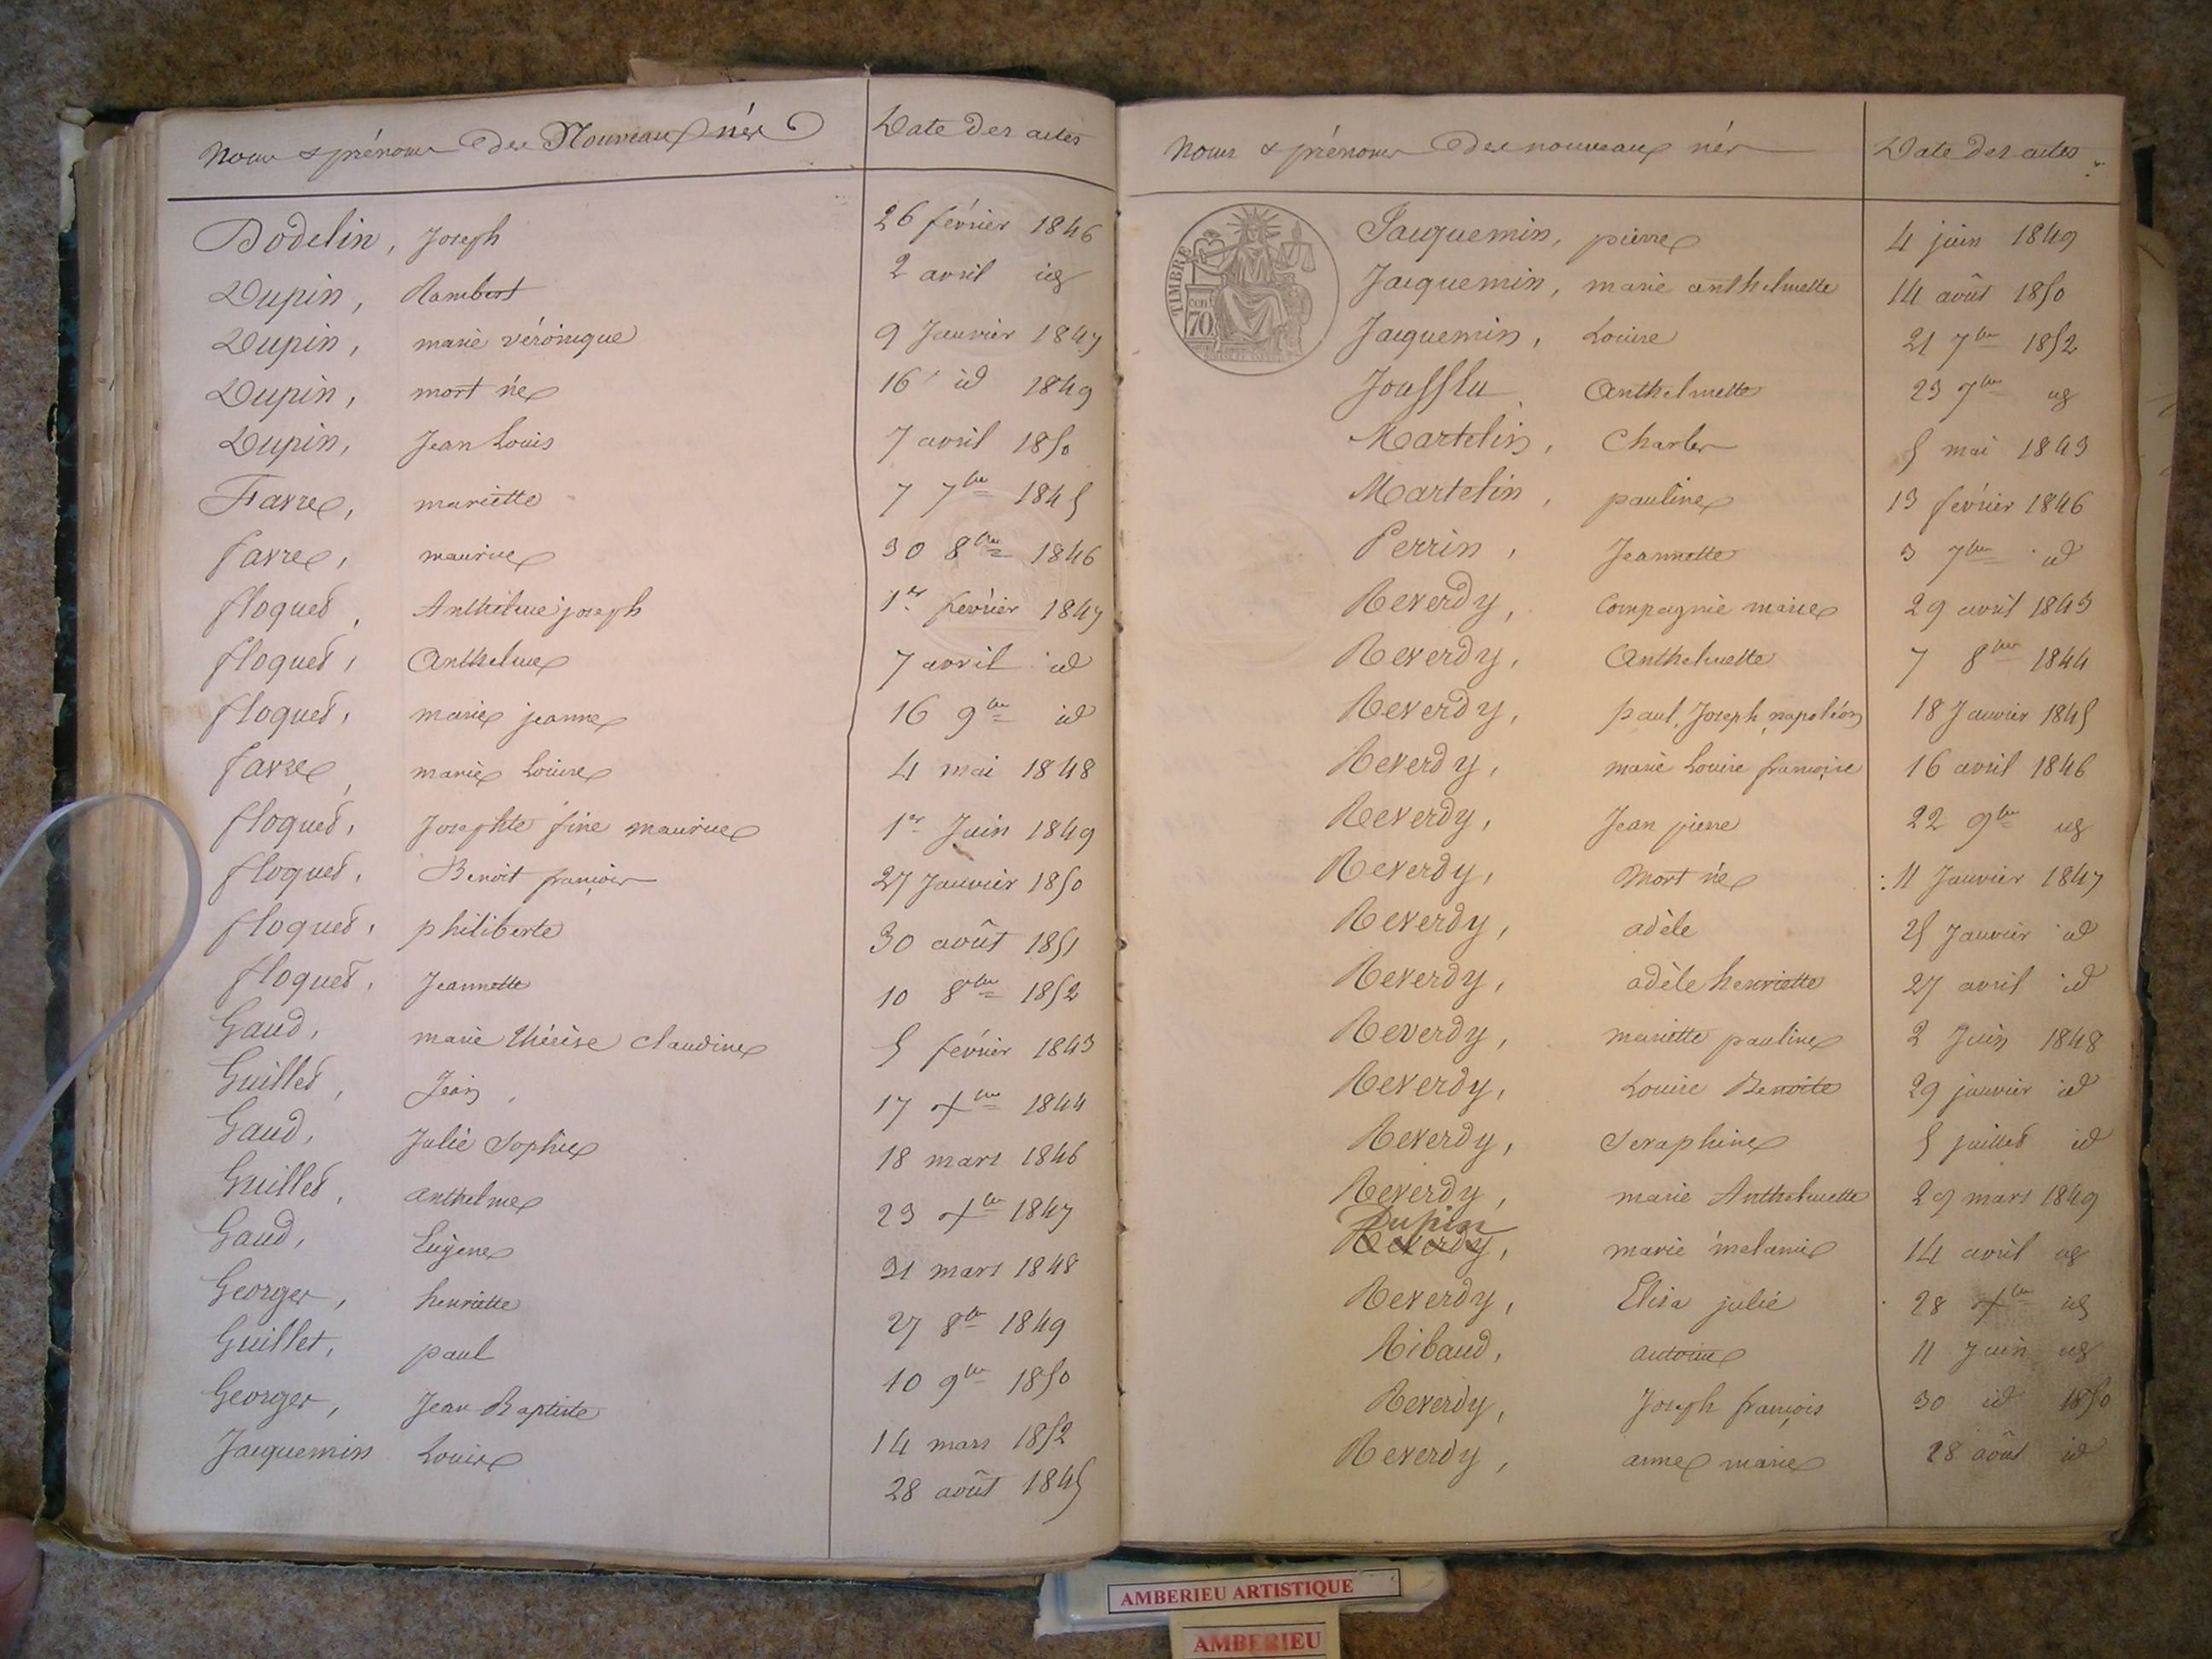 Noms & prénoms des Nouveaux nés Date des actes
Dodelin, Joseph 26 février 1846
Dupin, Rambert 2 avril id
Dupin, marie véronique 9 Janvier 1847
Dupin, mort né 16 id 1849
Dupin, Jean Louis 7 avril 1850
Favre, mariette 7 7bre 1845
favre, maurice 30 8bre 1846
floquet, Anthelme joseph 1er février 1847
floquet, Anthelme 7 avril id
floquet, marie jeanne 16 9bre id
favre, marie Louise 4 mai 1848
floquet, Josephte fine maurice 1er Juin 1849
floquet, Benoit françois 27 Janvier 1850
floquet, philiberte 30 août 1851
floquet, Jeannette 10 8bre 1852
Gaud, marie thérèse claudine 5 février 1843
Guillet, Jean 17 xbre 1844
Gaud, Julie Sophie 18 mars 1846
Guillet, anthelme 23 xbre 1847
Gaud, Eugène 31 mars 1848
Georges, henriette 27 8bre 1849
Guillet, paul 10 9bre 1850
Georges, Jean Baptiste 14 mars 1852
Jacquemin Louise 28 août 1845
Noms & prénoms des nouveaux nés Date des actes
TIMBRE
70
Jacquemin, pierre 4 juin 1849
Jacquemin, marie anthelmette 14 août 1850
Jacquemin, Louise 21 7bre 1852
Anthelmette 23 7bre id
Martelin, Charles 5 mai 1843
Martelin, pauline 13 février 1846
Perrin, Jeannette 3 7bre id
Reverdy, Compagnie marie 29 avril 1843
Reverdy, Anthelmette 7 8bre 1844
Reverdy, paul, Joseph napoléon 18 Janvier 1845
Reverdy, marie Louise françoise 16 avril 1846
Reverdy, Jean pierre 22 9bre id
Reverdy, Mort né 11 Janvier 1847
Reverdy, adèle 25 Janvier id
Reverdy, adèle henriette 27 avril id
Reverdy, mariette pauline 2 Juin 1848
Reverdy, Louise Benoite 29 janvier id
Reverdy, Seraphine 5 juillet id
Reverdy, marie Anthelmette 29 mars 1849
Dupin
Reverdy, marie mélanie 14 avril id
Reverdy, Elisa julie 28 xbre id
Ribaud, antoine 11 Juin id
Reverdy, Joseph françois 30 id 1850
Reverdy, anne marie 28 août id
AMBERIEU ARTISTIQUE
AMBERIEU